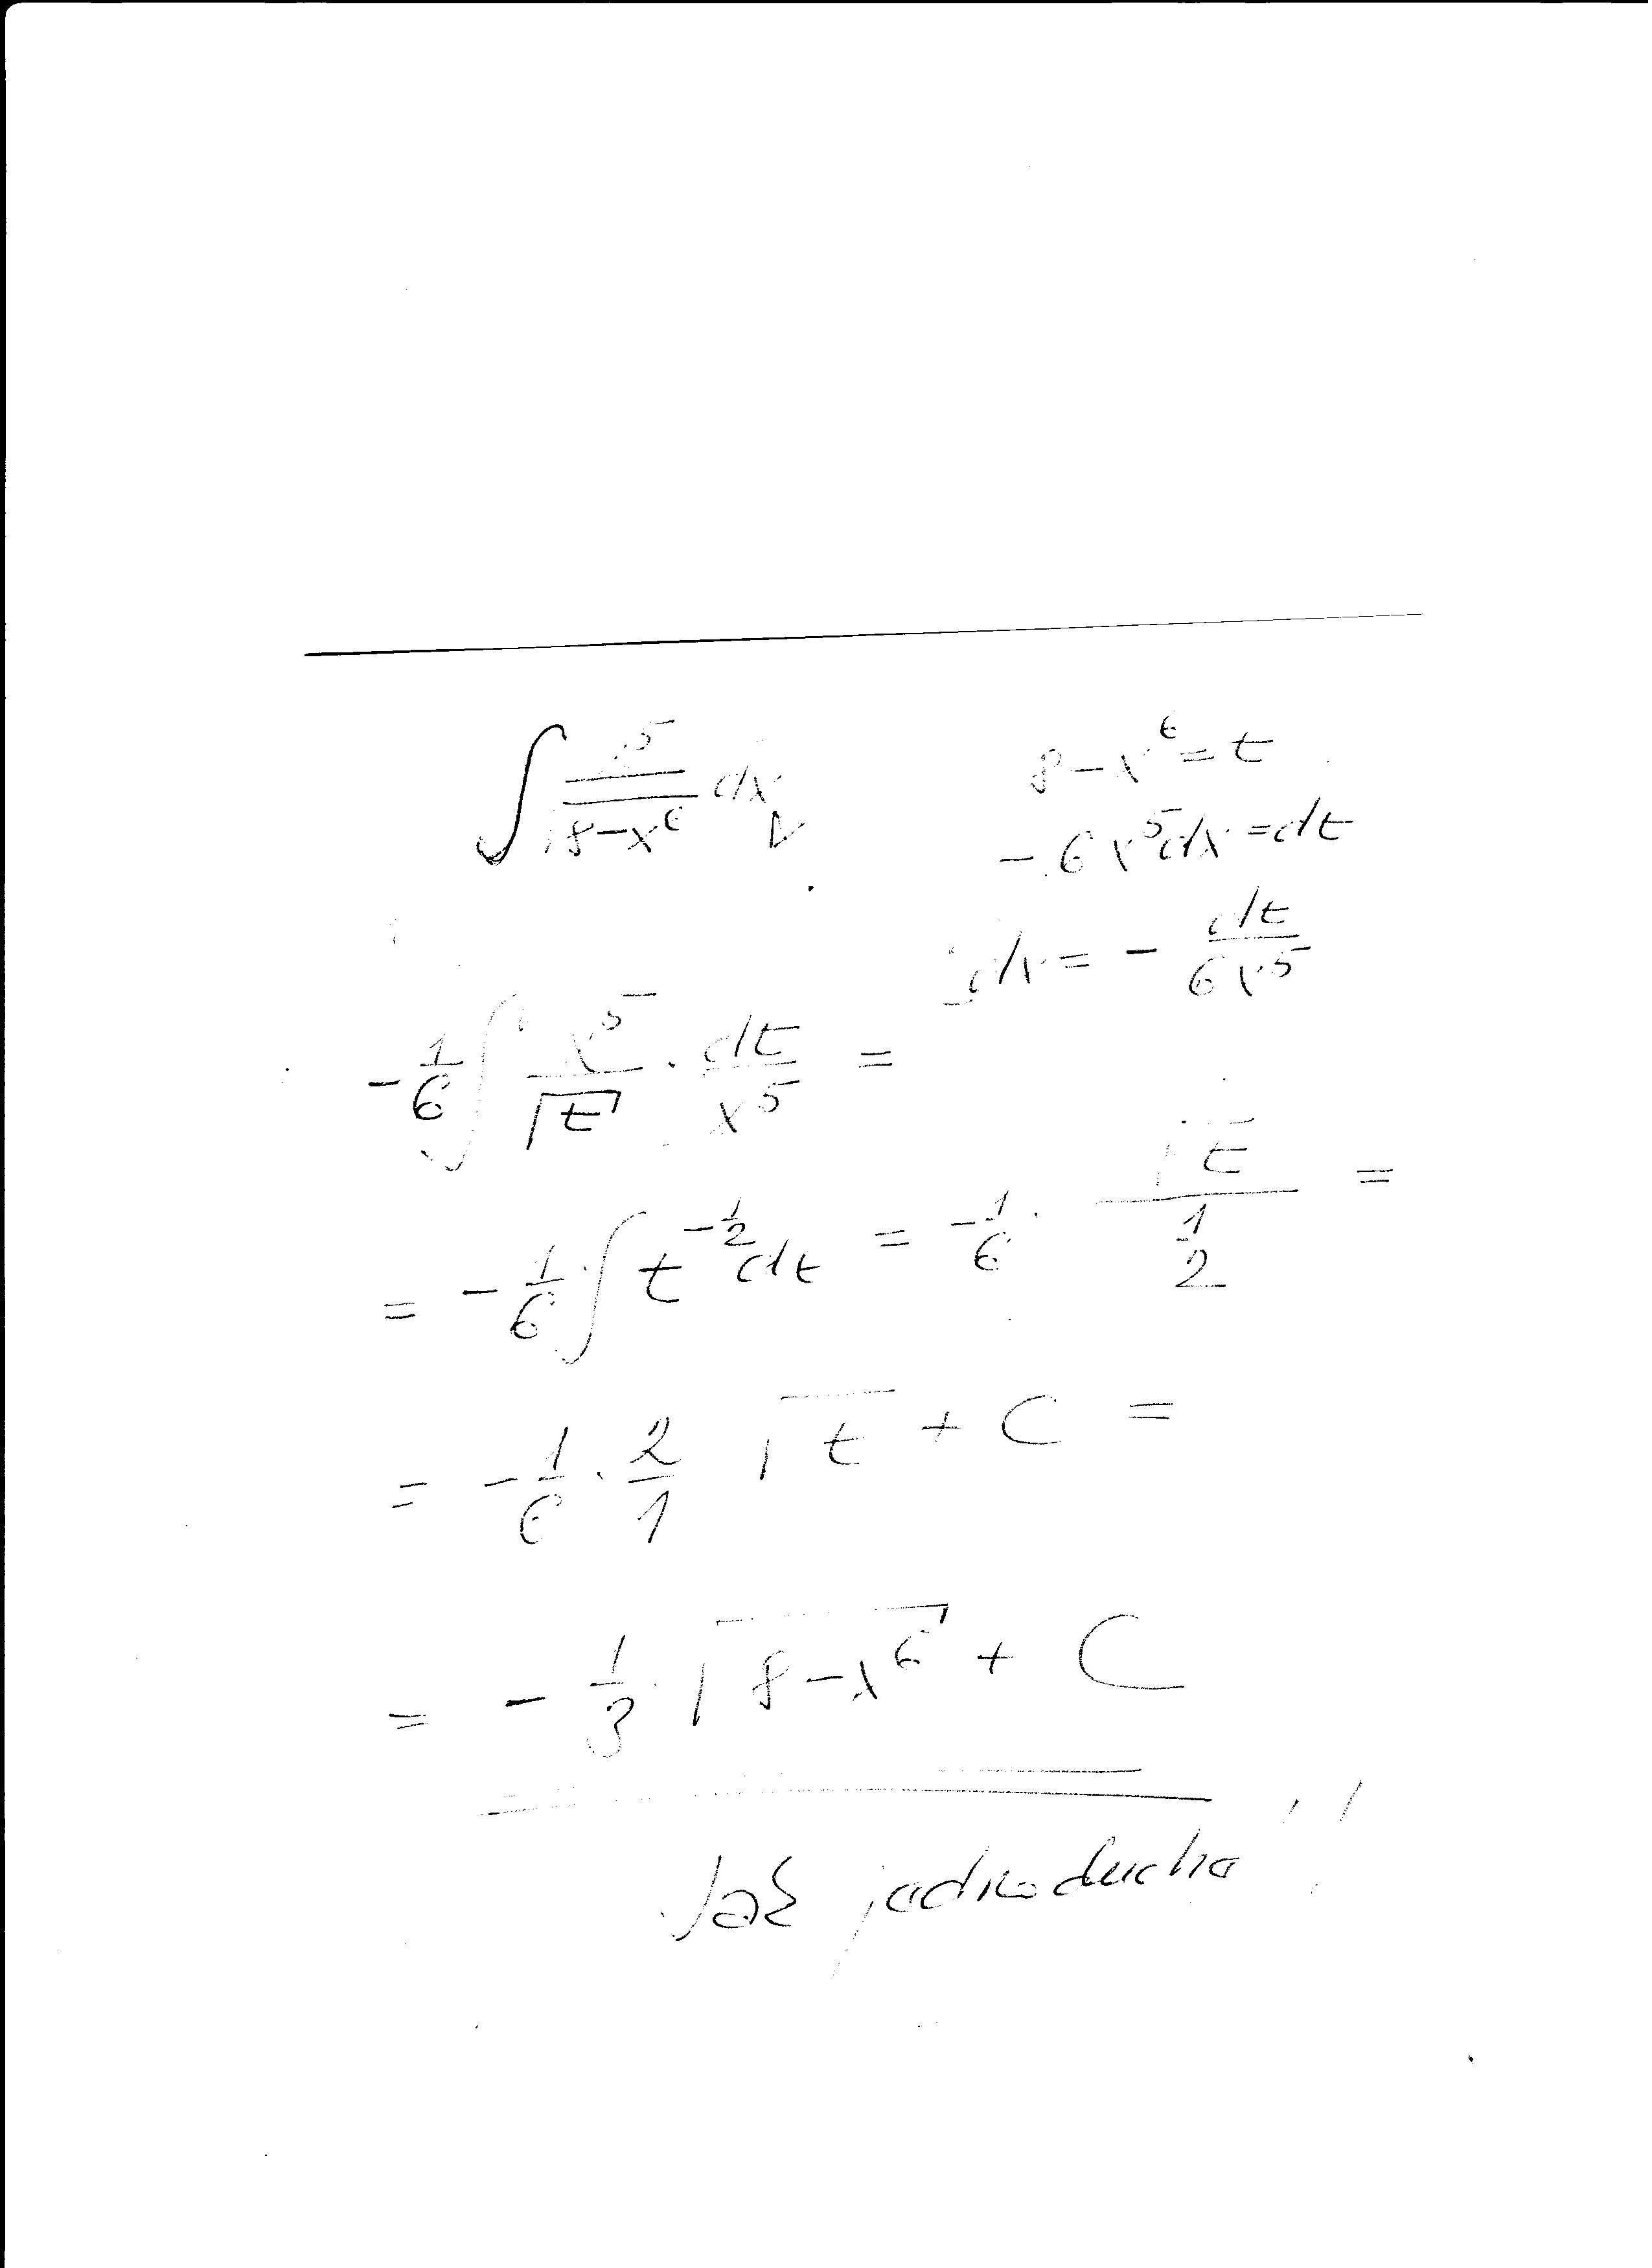 ∫ x^5/√(8-x^6) dx    8-x^6 = t
-6x^5dx = dt
dx = - dt/(6x^5)
-1/6 ∫ x^5/√t · dt/x^5 =
= -1/6 ∫ t^(-1/2) dt = -1/6 · √t/(1/2) =
= -1/6 · 2/1 √t + C =
= -1/3 √(8-x^6) + C